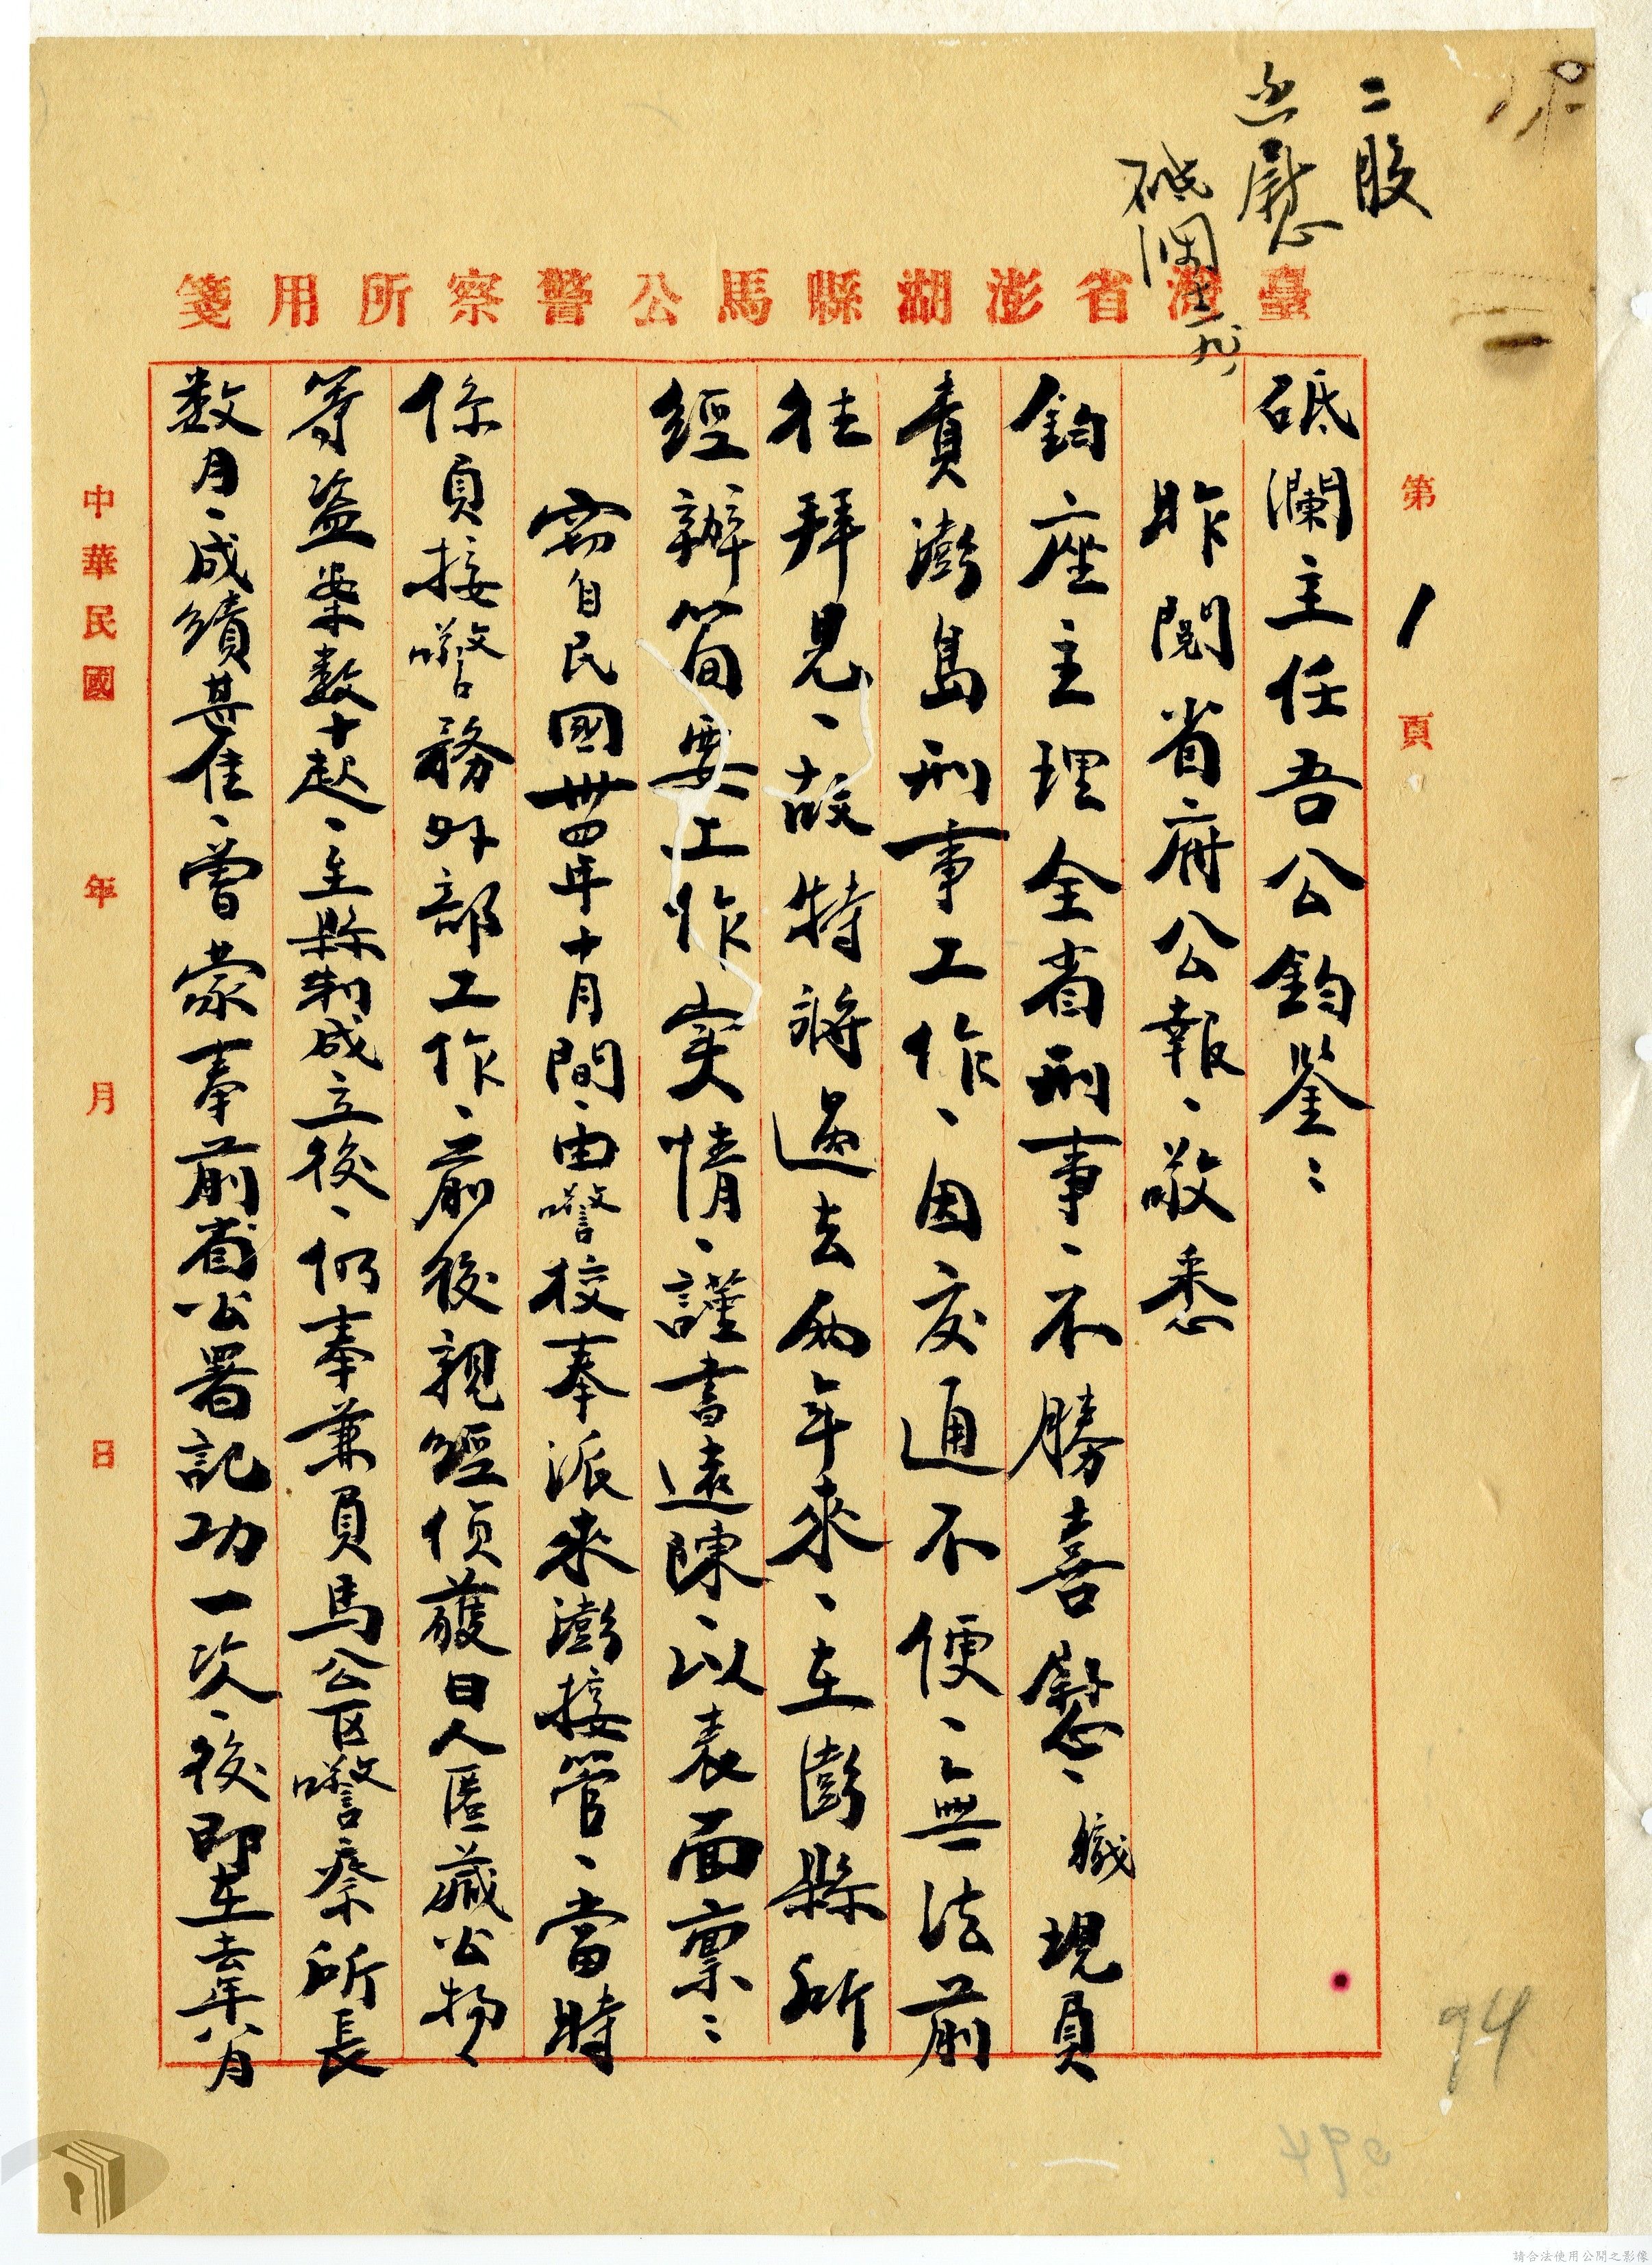 二股
函慰
砥瀾
臺灣省澎湖縣馬公警察所用箋
第1頁
砥瀾主任吾公鈞鑒：
昨閱省府公報、敬悉
鈞座主理全省刑事、不勝喜慰、職現員
責澎島刑事工作、因交通不便、無法前
往拜見、故特將過去兩年來、在澎縣所
經辦简要工作实情、謹書遠陳、以表面禀：
窃自民國卅四年十月間、由警校奉派來澎接管、當時
係負接警務外部工作、前後親經偵獲日人匿藏公物
等盗案数十起、至縣制成立後、仍奉兼員馬公区警察所長
数月、成績甚佳、曾蒙奉前省公署記功一次、後即在去年八月
中華民國 年 月 日
94
請合法使用公開之影像